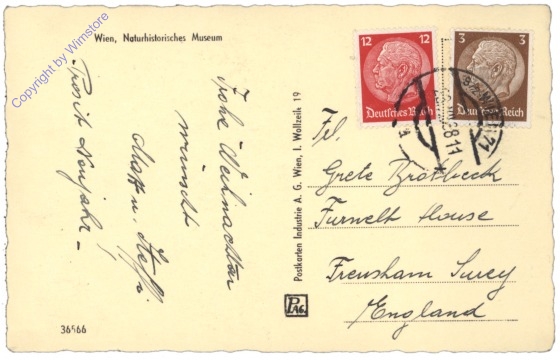 Copyright by Wimstore
Wien, Naturhistorisches Museum
Frohe Weihnachten
wünscht
Steffi
Prosit Neujahr –
36566
Postkarten Industrie A. G. Wien, I. Wollzeile 19
PAG.
12 12
Deutsches Reich
3 3
Deutsches Reich
71
Frl.
Grete Brotbeck
Furnelt House
Frensham Surrey
England